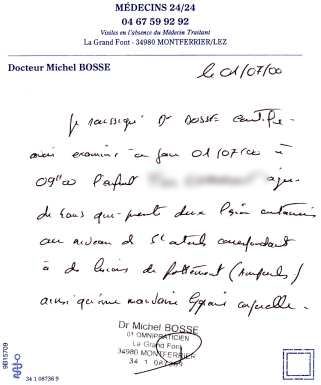 MÉDECINS 24/24
04 67 59 92 92
Visites en l'absence du Médecin Traitant
La Grand Font - 34980 MONTFERRIER/LEZ
Docteur Michel BOSSE
le 01/07/00
Je soussigné Dr BOSSE certifie
avoir examiné ce jour 01/07/00 à
09h00 l'enfant âgée
de 5 ans qui présente deux lésions cutanées
au niveau de correspondant
à des lésions de frottement
ainsi qu'une mauvaise hygiène corporelle.
Dr Michel BOSSE
01 OMNIPRATICIEN
La Grand Font
34980 MONTFERRIER
34 1 08736
9815709
34 1 08736 9